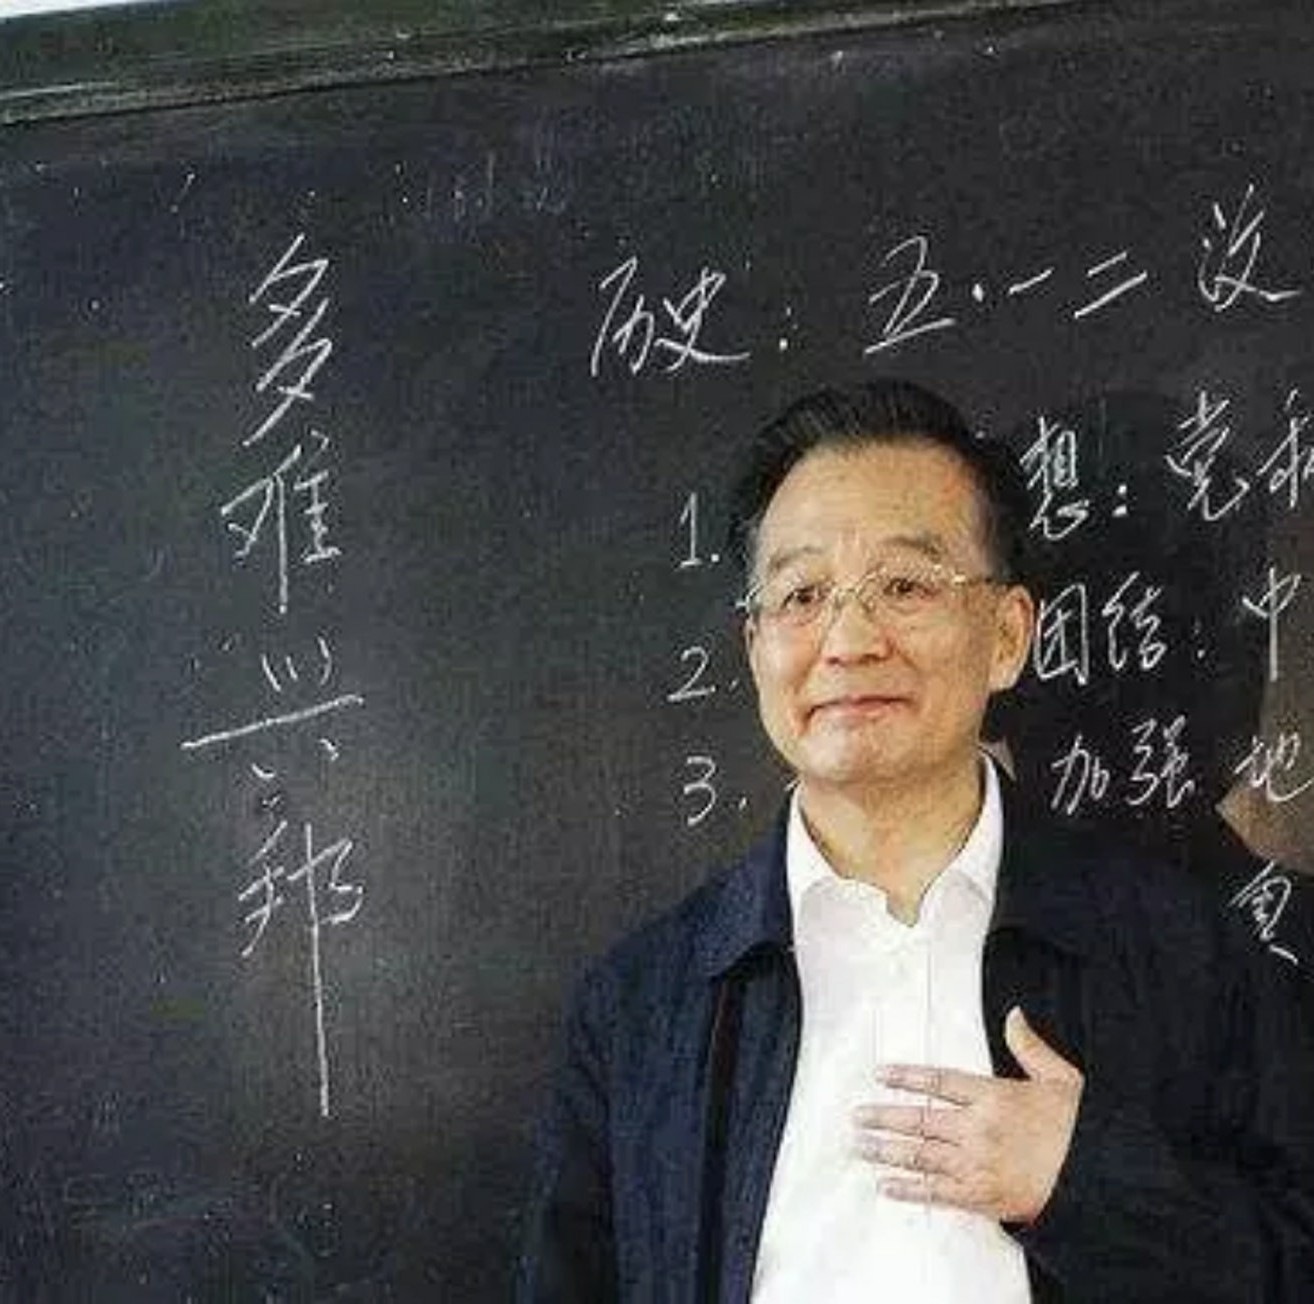 多难兴邦
历史：五·一二 汶
想：党和
1.
团结：中
2.
加强 地
3.